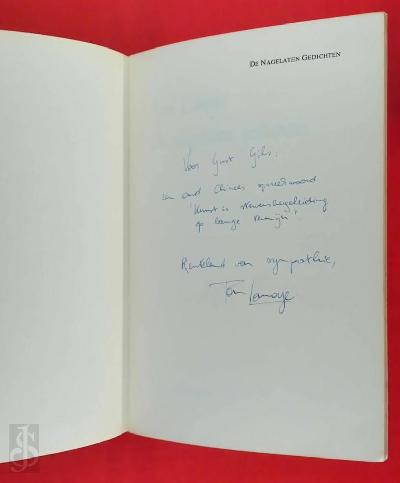 DE NAGELATEN GEDICHTEN
Voor Gust Gils:
een oud Chinees spreekwoord
'Kunst is stervensbegeleiding
op lange termijn'
van sympathie,
Tom Lanoye